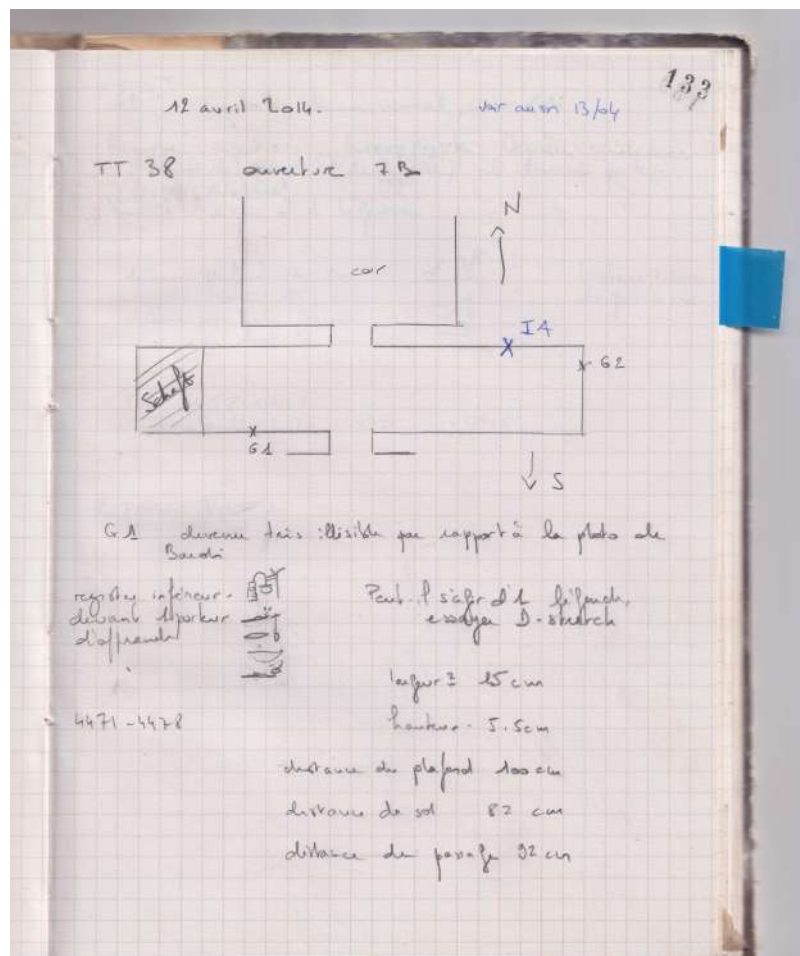 133
12 avril 2014.
voir aussi 13/04
TT 38 ouverture 7B
N
cour
I4
G2
Schaft
G1
S
G1 devenu très illisible par rapport à la photo de
registre inférieur.
devant 1 porteur
d'offrande
Peut-il s'agir d'1
essayer D-stretch
largeur = 15 cm
4471-4478
hauteur. 5.5cm
distance du plafond 100 cm
distance du sol 82 cm
distance du passage 92 cm